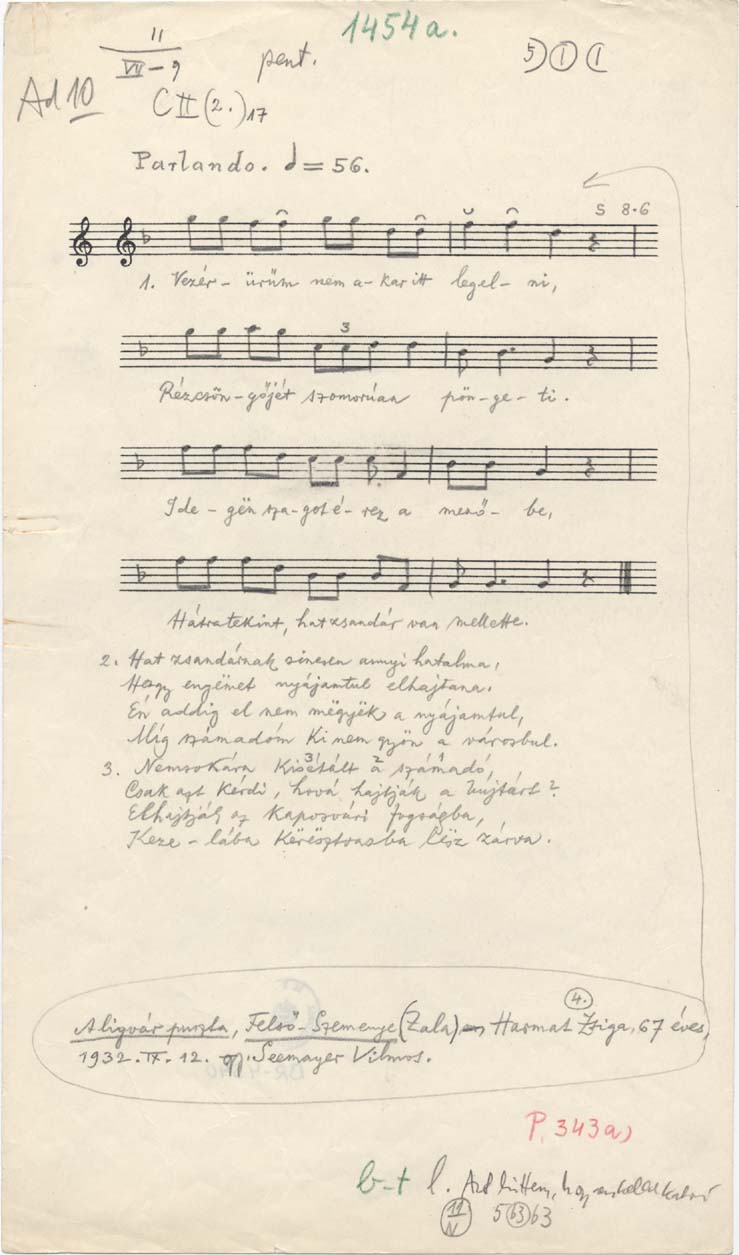 1454a.
11
VII-9
pent.
5) (1) (1
Ad 10
C II (2.) 17
Parlando. = 56.
S 8·6
1. Vezér- ürüm nem a- kar itt legel- ni,
3
Rézcsön-gőjét szomorúan pön-ge-ti.
Ide-gën sza-got é-rez a menő-be,
Hátratekint, hat zsandár van mellette.
2. Hat zsandárnak sincsen annyi hatalma,
Hogy engëmet nyájamtul elhajtana.
Én addig el nem mëgyëk a nyájamtul,
Míg számadóm ki nem gyön a városbul.
3. Nemsokára kisétált a számadó,
3 2 1
Csak azt kérdi, hová hajtják a bújtárt?
Elhajtják az kaposvári fogságba,
Keze-lába kërësztvasba lësz zárva.
4.
Aligvár puszta, Felső-Szemenye (Zala) Harmat Zsiga, 67 éves,
1932. IX. 12. gy. Seemayer Vilmos.
P. 343a)
b-t l. Azt hittem, hogy
11
IV
5 (63) 63